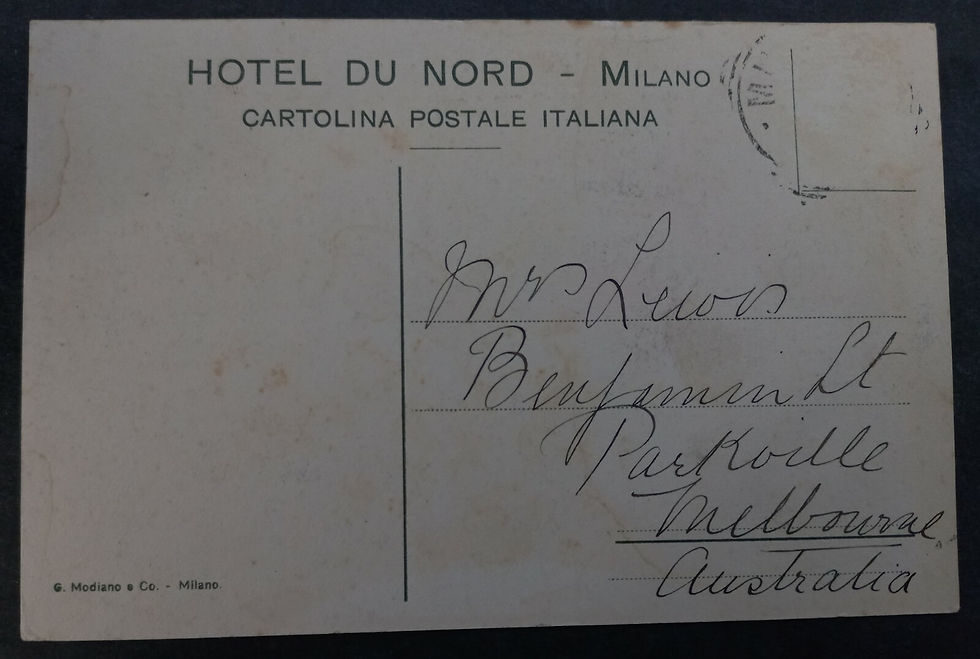 HOTEL DU NORD - MILANO
CARTOLINA POSTALE ITALIANA
Mrs Lewis
Benjamin St
Parkville
Melbourne
Australia
G. Modiano e Co. - Milano.